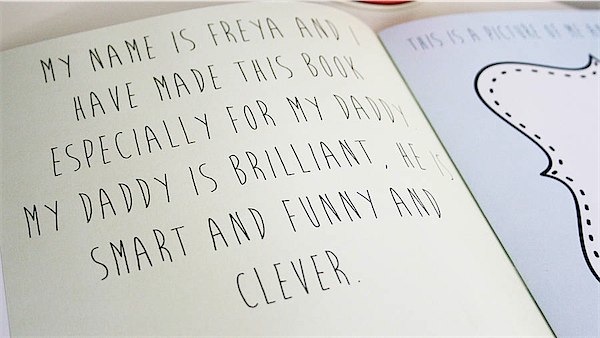 MY NAME IS FREYA AND I
HAVE MADE THIS BOOK
ESPECIALLY FOR MY DADDY.
MY DADDY IS BRILLIANT, HE IS
SMART AND FUNNY AND
CLEVER.
THIS IS A PICTURE OF ME